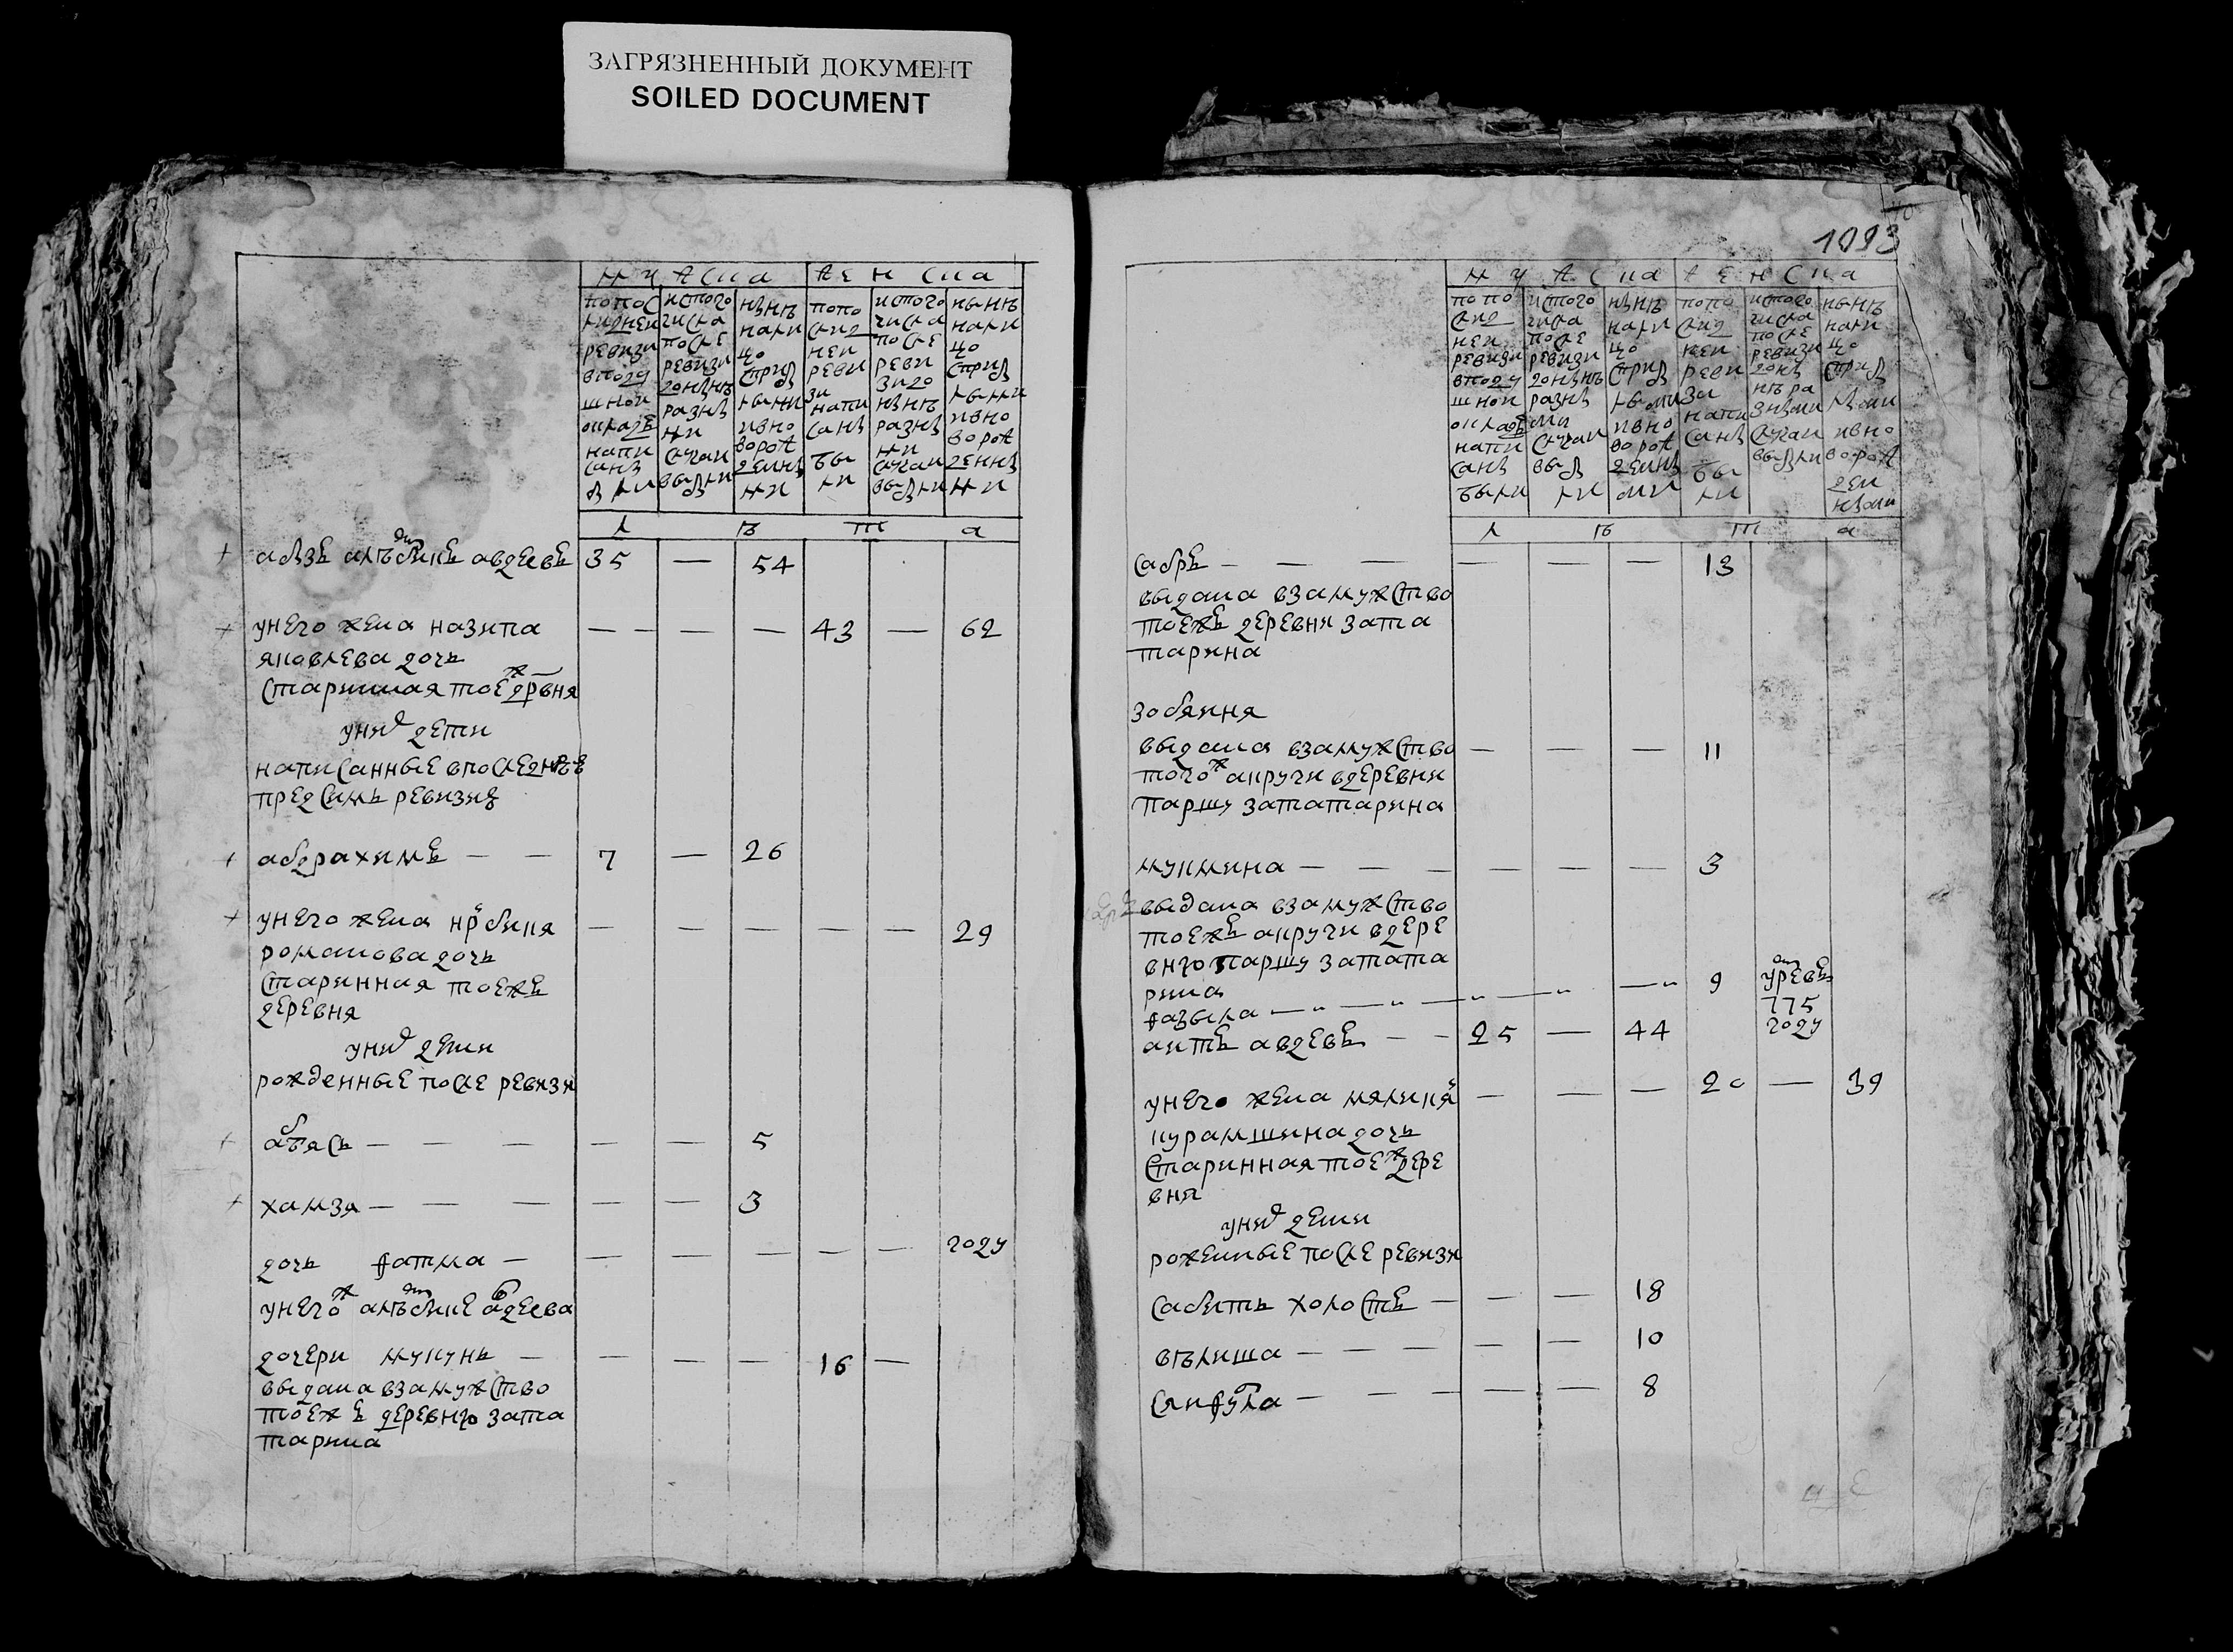 ЗАГРЯЗНЕННЫЙ ДОКУМЕНТ
SOILED DOCUMENT
мужска женска
попос
леднеи
ревизи
вподу
шнои
окладе
напи
саны
были
истого
числа
после
ревизи
доныне
разны
ми
случаи
выбыли
ныне
нали
цо
сприб
лыми
ивно
ворож
денны
ми
попо
след
неи
реви
зи
напи
саны
бы
ли
истого
числа
после
реви
зидо
ныне
разны
ми
случаи
выбыли
ныне
нали
цо
сприб
лыми
ивно
ворож
денны
ми
л ѣ т а
абзъ алѣбикъ авдеевъ 35 — 54
унего жена назипа — — — — 43 — 62
яковлева дочь
старинная тоеж дрвня
уних дети
написанные впоследнѣ
пред симъ ревизиз
абдрахимъ — — 7 — 26
унего жена нрбикя — — — — — 29
романова дочь
старинная тоежъ
деревня
уних дети
рожденные после ревизи
абтясь — — — — — 5
хамзя — — — — — 3
дочь фатма — — — — — — году
унегож алѣбике авдеева
дочери мукунь — — — — 16 —
выдана взамужство
тоежъ деревню зата
тарина
1093
мужска женска
попо
след
неи
ревизи
вподу
шнои
окладе
напи
саны
были
истого
числа
после
ревизи
доныне
разны
ми
случаи
выб
ли
ныне
нали
цо
сприб
лыми
ивно
ворож
денны
ми
попо
след
неи
реви
зи
напи
саны
бы
ли
истого
числа
после
ревизи
доны
нѣ ра
зными
случаи
выбыли
ныне
нали
цо
сприб
лыми
ивно
ворож
ден
ными
л ѣ т а
сабръ — — — — — — 13
выдана взамужство
тоежъ деревня зата
тарина
зобяиня
выдана взамужство — — — 11
тогож округи вдеревни
паршу зататарина
мукмина — — — — — — 3
выдана взамужство
тоежъ округи вдере
вню паршу затата
рина
фазыла — — — — — 9 умревъ
775
году
аитъ авдевъ — — 25 — 44
унего жена маликя — — — 20 — 39
курамшина дочь
старинная тоеж дере
вня
уних дети
роженные после ревизи
сабить холостъ — — — 18
вѣлиша — — — — — 10
сяифула — — — — — 8